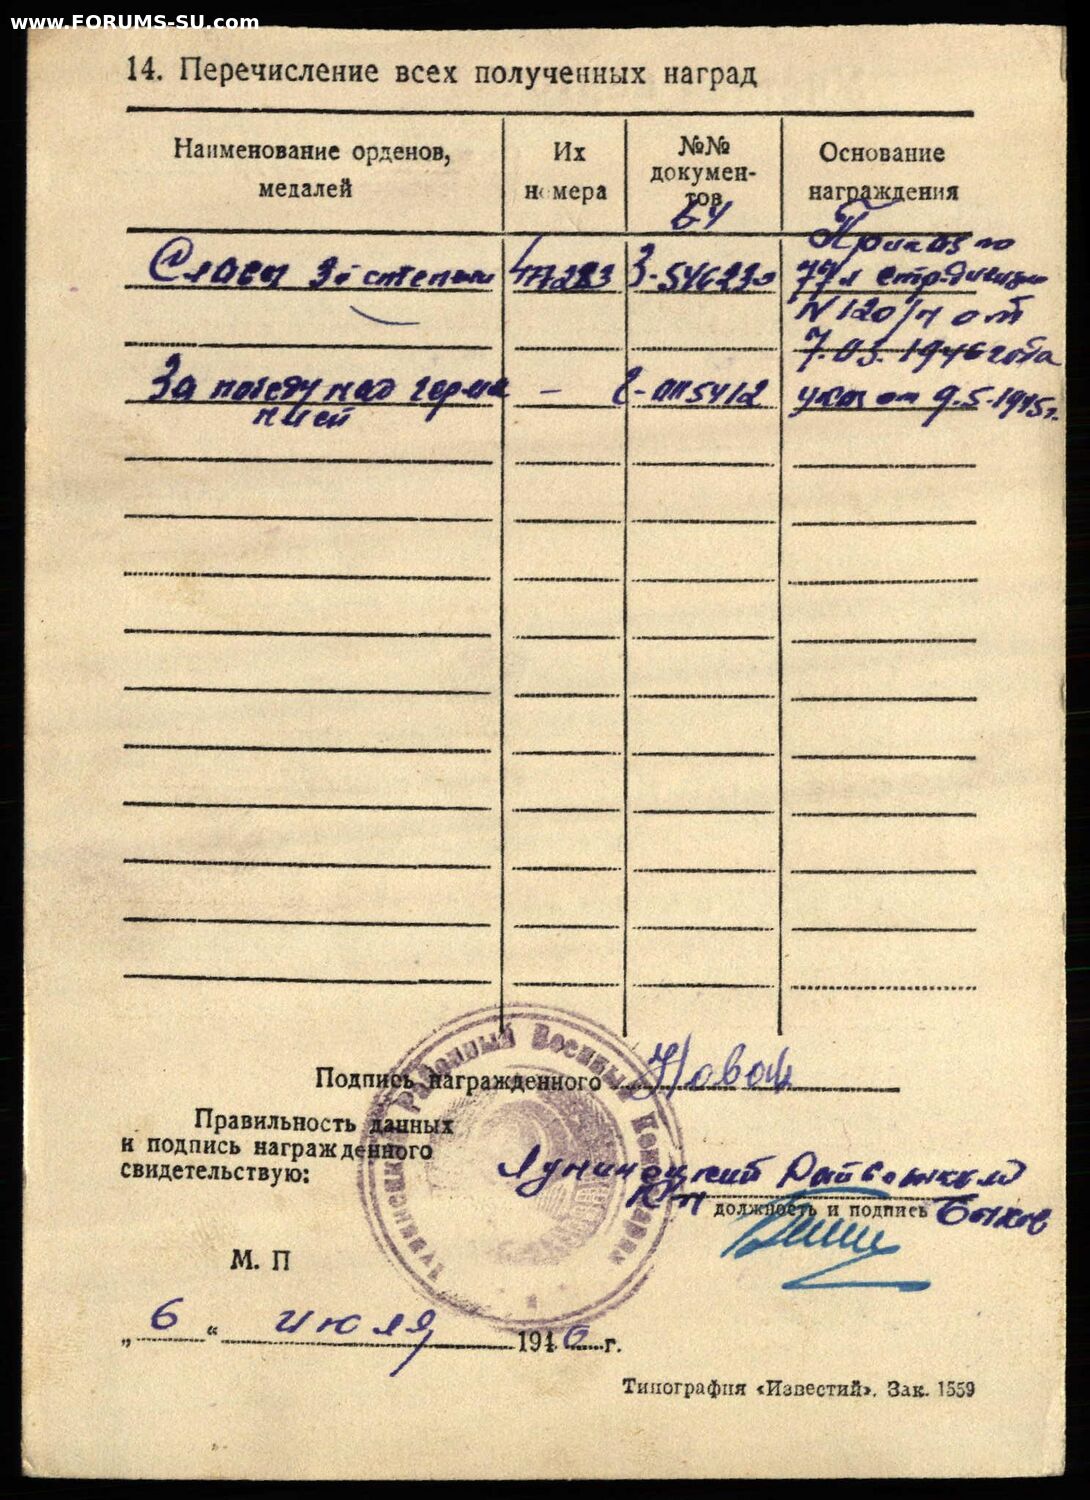 www.FORUMS-SU.com
14. Перечисление всех полученных наград
Наименование орденов, медалей
Их номера
№№ документов
Основание награждения
64
Славы 3й степени 477283 З-546230 Приказ по
77й стр.дивизии
N 120/н от
7.03.1946 года
За победу над герма — 0115412 указ от 9.5.1945г.
нией
Подпись награжденного
Правильность данных
и подпись награжденного
свидетельствую:
Лунинецкий Райвоенком
должность и подпись Быков
Районный Военный Комиссариат
М. П
„ 6 “ июля 1946 г.
Типография «Известий». Зак. 1559